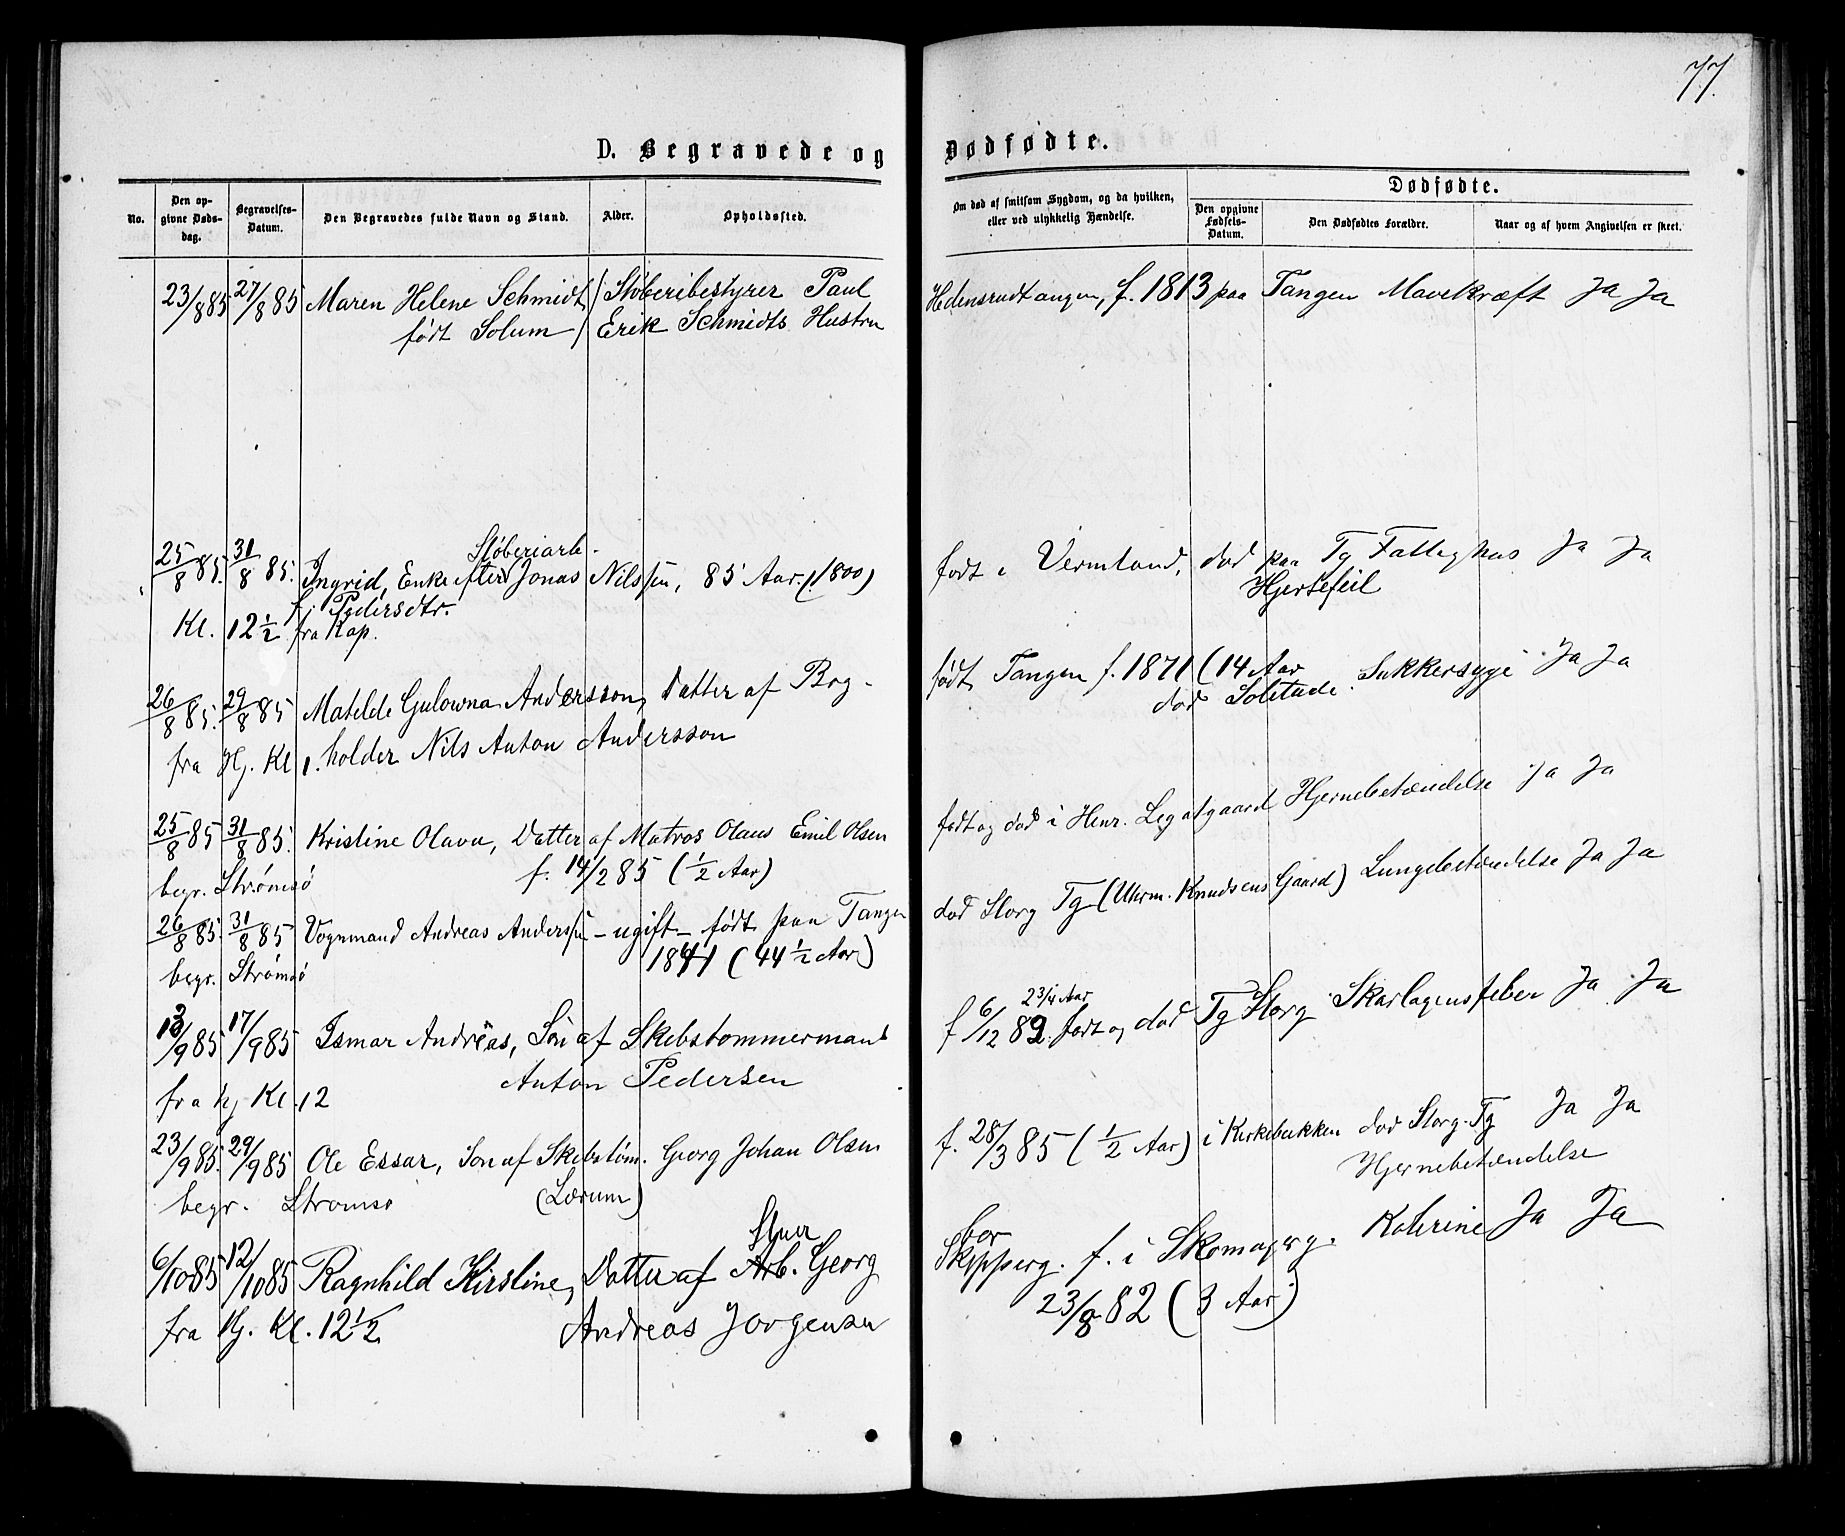 77.
D. Begravede og Dødfødte.
No.
Den opgivne Døds-dag.
Begravelses-Datum.
Den Begravedes fulde Navn og Stand.
Alder.
Opholdssted.
Om død af smitsom Sygdom, og da hvilken, eller ved ulykkelig Hændelse.
Dødfødte.
Den opgivne Fødsels-Datum.
Den Dødfødtes Forældre.
Naar og af hvem Angivelsen er skeet.
23/8 85 27/8 85 Maren Helene Schmidt / Støberibestyrer Paul
født Solum / Erik Schmidts Hustru
Hedensrudtangen, f. 1813 paa Tangen Mavekræft Ja Ja
Støberiarb.
25/8 85. 31/8 85. Ingrid, Enke efter Jonas Nilssen, 85 Aar. (1800)
f. Pedersdtr.
Kl. 12 1/2 fra Kap.
født i Vermland, død paa Tg Fattighus Ja Ja
Hjertefeil
26/8 85. 29/8 85 Matilde Gulowna Andersson, Datter af Brg-
fra Hj. Kl 1. holder Nils Anton Andersson
født Tangen f. 1871 (14 Aar Sukkersyge Ja Ja
død Solitude.
25/8 85 31/8 85. Kristine Olava, Datter af Matros Olaus Emil Olsen
begr. Strømsø f. 14/2 85 (1/2 Aar)
født og død i Henr. Legatgaard Hjernebetændelse Ja Ja
26/8 85. 31/8 85 Vognmand Andreas Anderssen - ugift - født paa Tangen
begr. Strømsø 1841 (44 1/2 Aar)
død Storg Tg (Uhrm. Knudsens Gaard) Lungebetændelse Ja Ja
13/9 85 17/9 85 Ismar Andreas, Søn af Skibstømmermand
fra hj Kl. 12 Anton Pedersen
2 3/4 Aar
f 6/12 82. født og død Tg Storg Skarlagensfeber Ja Ja
23/9 85. 29/9 85 Ole Essar, Søn af Skibstøm. Georg Johan Olsen
begr. Strømsø (Lærum)
f. 28/3 85 (1/2 Aar) i Kirkebakken død Storg. Tg Ja Ja
Hjernebetændelse
6/10 85 12/10 85 Ragnhild Kirstine, Datter af Arb. Georg
fra Hj. Kl. 12 1/2 Andreas Jørgensen
bor
Skipperg. f. i Skomagerg. Ja Ja
23/8 82 (3 Aar)